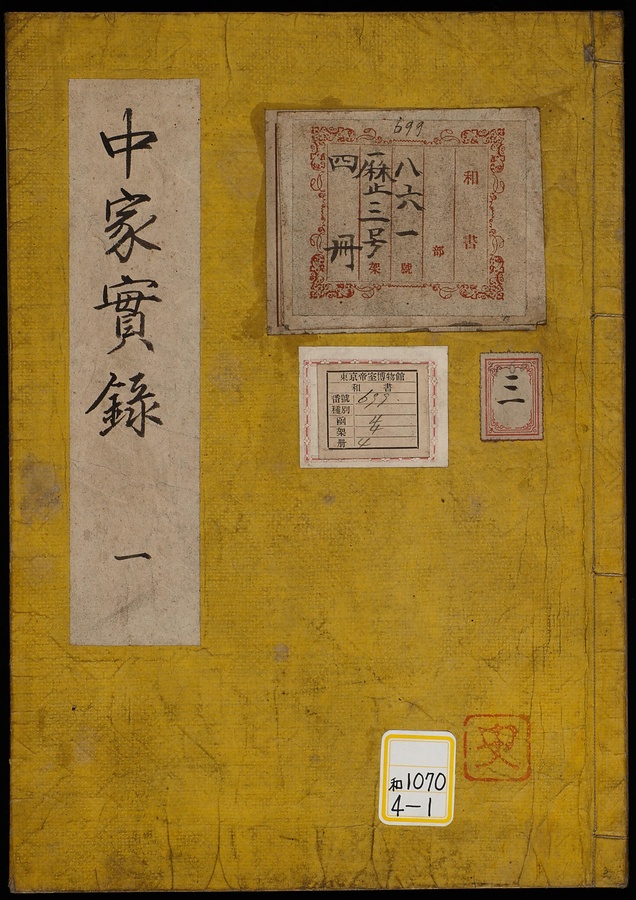 中家實錄 一
699
和書
部
八六一號
三号架
四冊
東京帝室博物館
和書
番號 699
種別
函 4
架 4
册 4
三
史
和1070
4-1